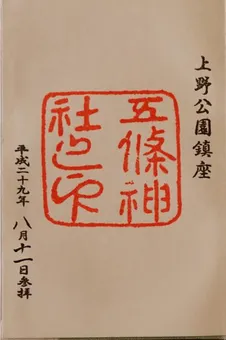 上野公園鎮座
五條神
社之印
平成二十九年
八月十一日参拝